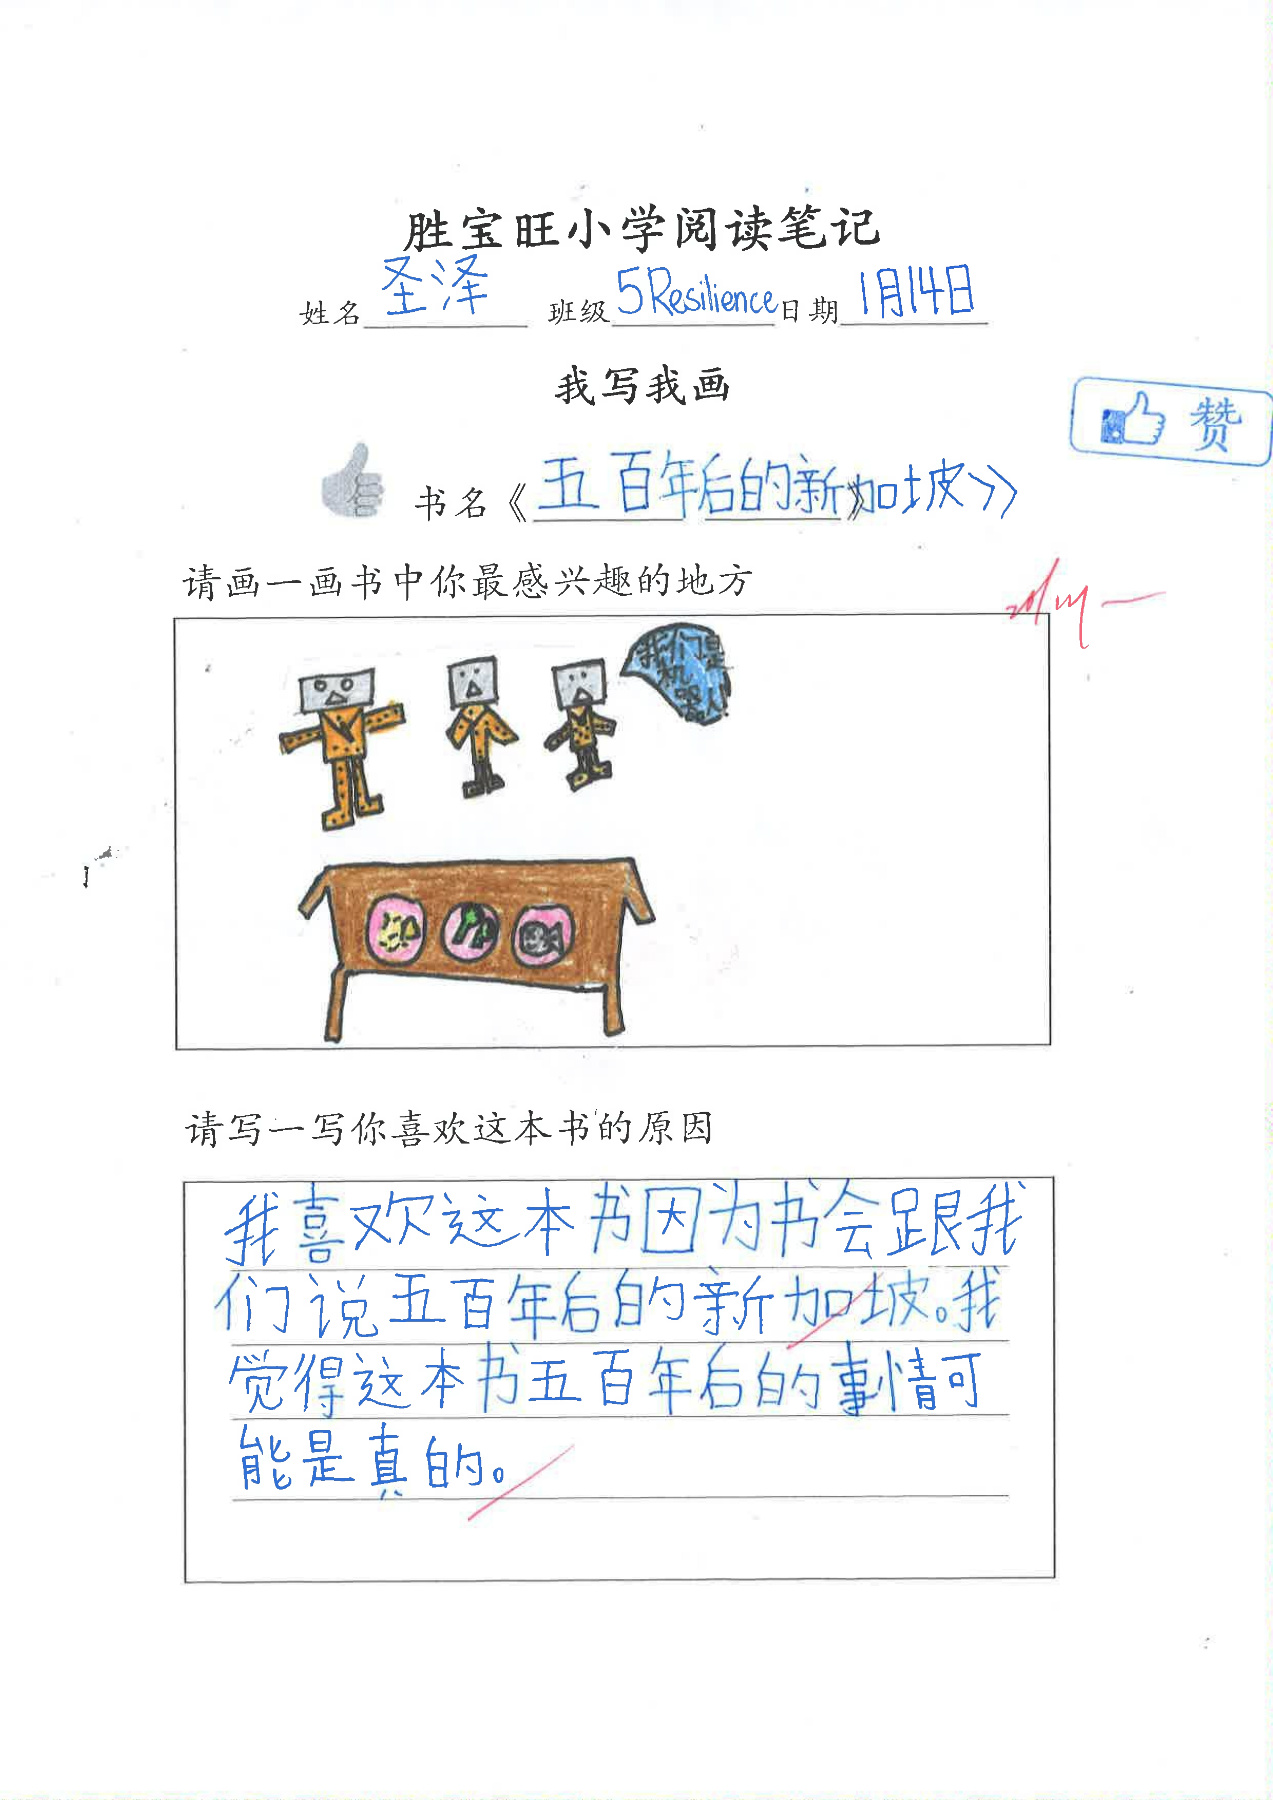 胜宝旺小学阅读笔记
姓名 圣泽 班级 5Resilience 日期 1月14日
我写我画
赞
书名《五百年后的新》加坡》
请画一画书中你最感兴趣的地方
我们是
机
器人
请写一写你喜欢这本书的原因
我喜欢这本书因为书会跟我
们说五百年后的新加坡。我
觉得这本书五百年后的事情可
能是真的。